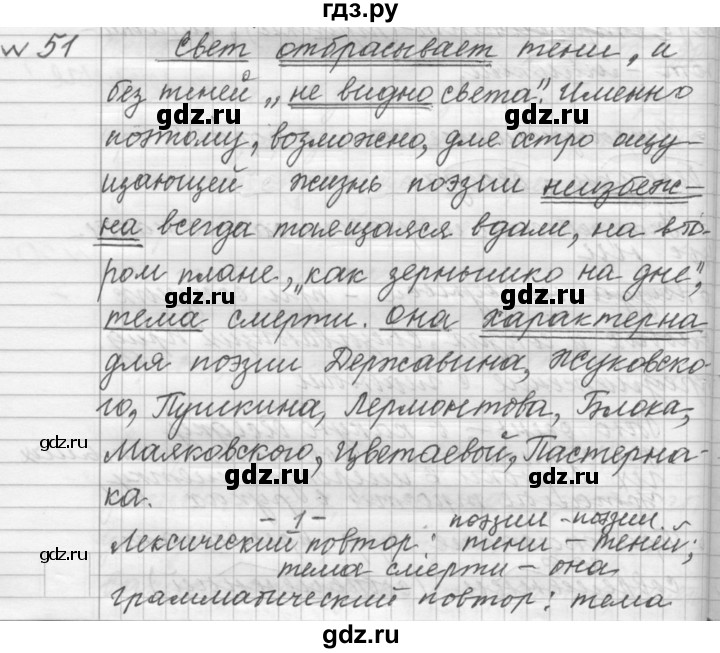 гдз.ру
№ 51 Свет отбрасывает тени, и
без теней „не видно света". Именно
gdz.ru gdz.ru
поэтому, возможно, для остро ощу-
щающей жизнь поэзии неизбеж-
на всегда таящаяся вдали, на вто-
ром плане, „как зернышко на дне",
gdz.ru gdz.ru
тема смерти. Она характерна
для поэзии Державина, Жуковско-
го, Пушкина, Лермонтова, Блока,
gdz.ru
Маяковского, Цветаевой, Пастерна-
gdz.ru gdz.ru
ка.
- 1 - поэзии - поэзии.
Лексический повтор: тени - теней;
gdz.ru
тема смерти - она
грамматический повтор: тема
gdz.ru gdz.ru